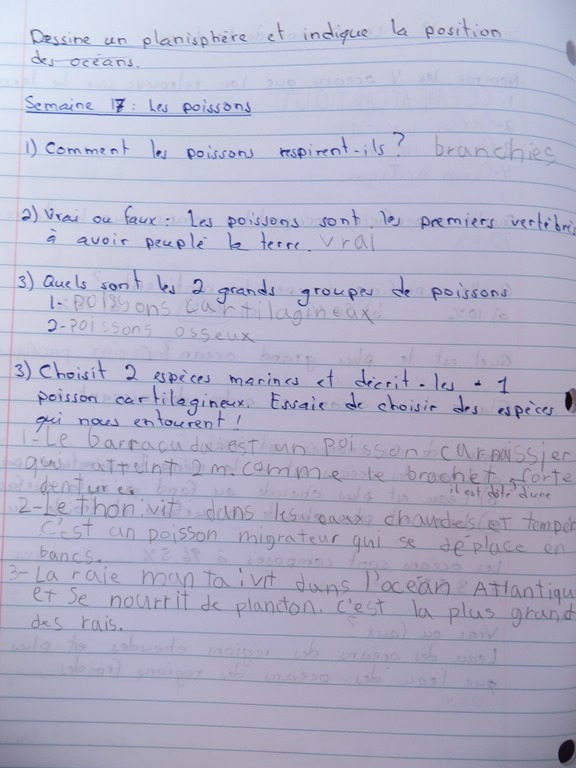 Dessine un planisphère et indique la position
des océans.
Semaine 17: Les poissons
1) Comment les poissons respirent-ils? branchies
2) Vrai ou faux: Les poissons sont les premiers vertébrés
à avoir peuplé la terre. vrai
3) Quels sont les 2 grands groupes de poissons
1- poissons cartilagineax
2-poissons osseux
3) Choisit 2 espèces marines et décrit-les + 1
poisson cartilagineux. Essaie de choisir des espèces
qui nous entourent!
1-Le barracuda est un poisson carnassier
qui atteint 2 m. comme le brochet, forte
il est doté d'une
denture
2-Le thon vit dans les eaux chaudes et tempér
C'est un poisson migrateur qui se déplace en
bancs.
3-La raie manta ivit dans l'océan Atlantiqu
et se nourrit de plancton. C'est la plus grand
des rais.